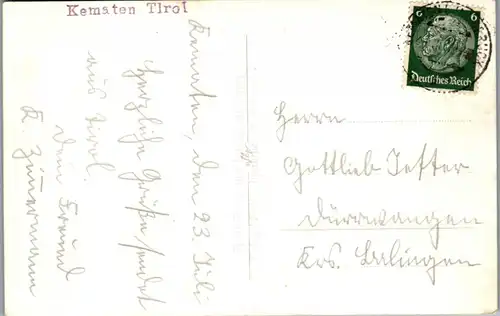 Kematen Tirol
Kematen, den 23. Juli
Herzliche Grüße sendet
aus Tirol.
Dein Freund
K. Zimmermann
6 6
Deutsches Reich
Herrn
Gottlieb Jetter
Dürrwangen
Krs. Balingen